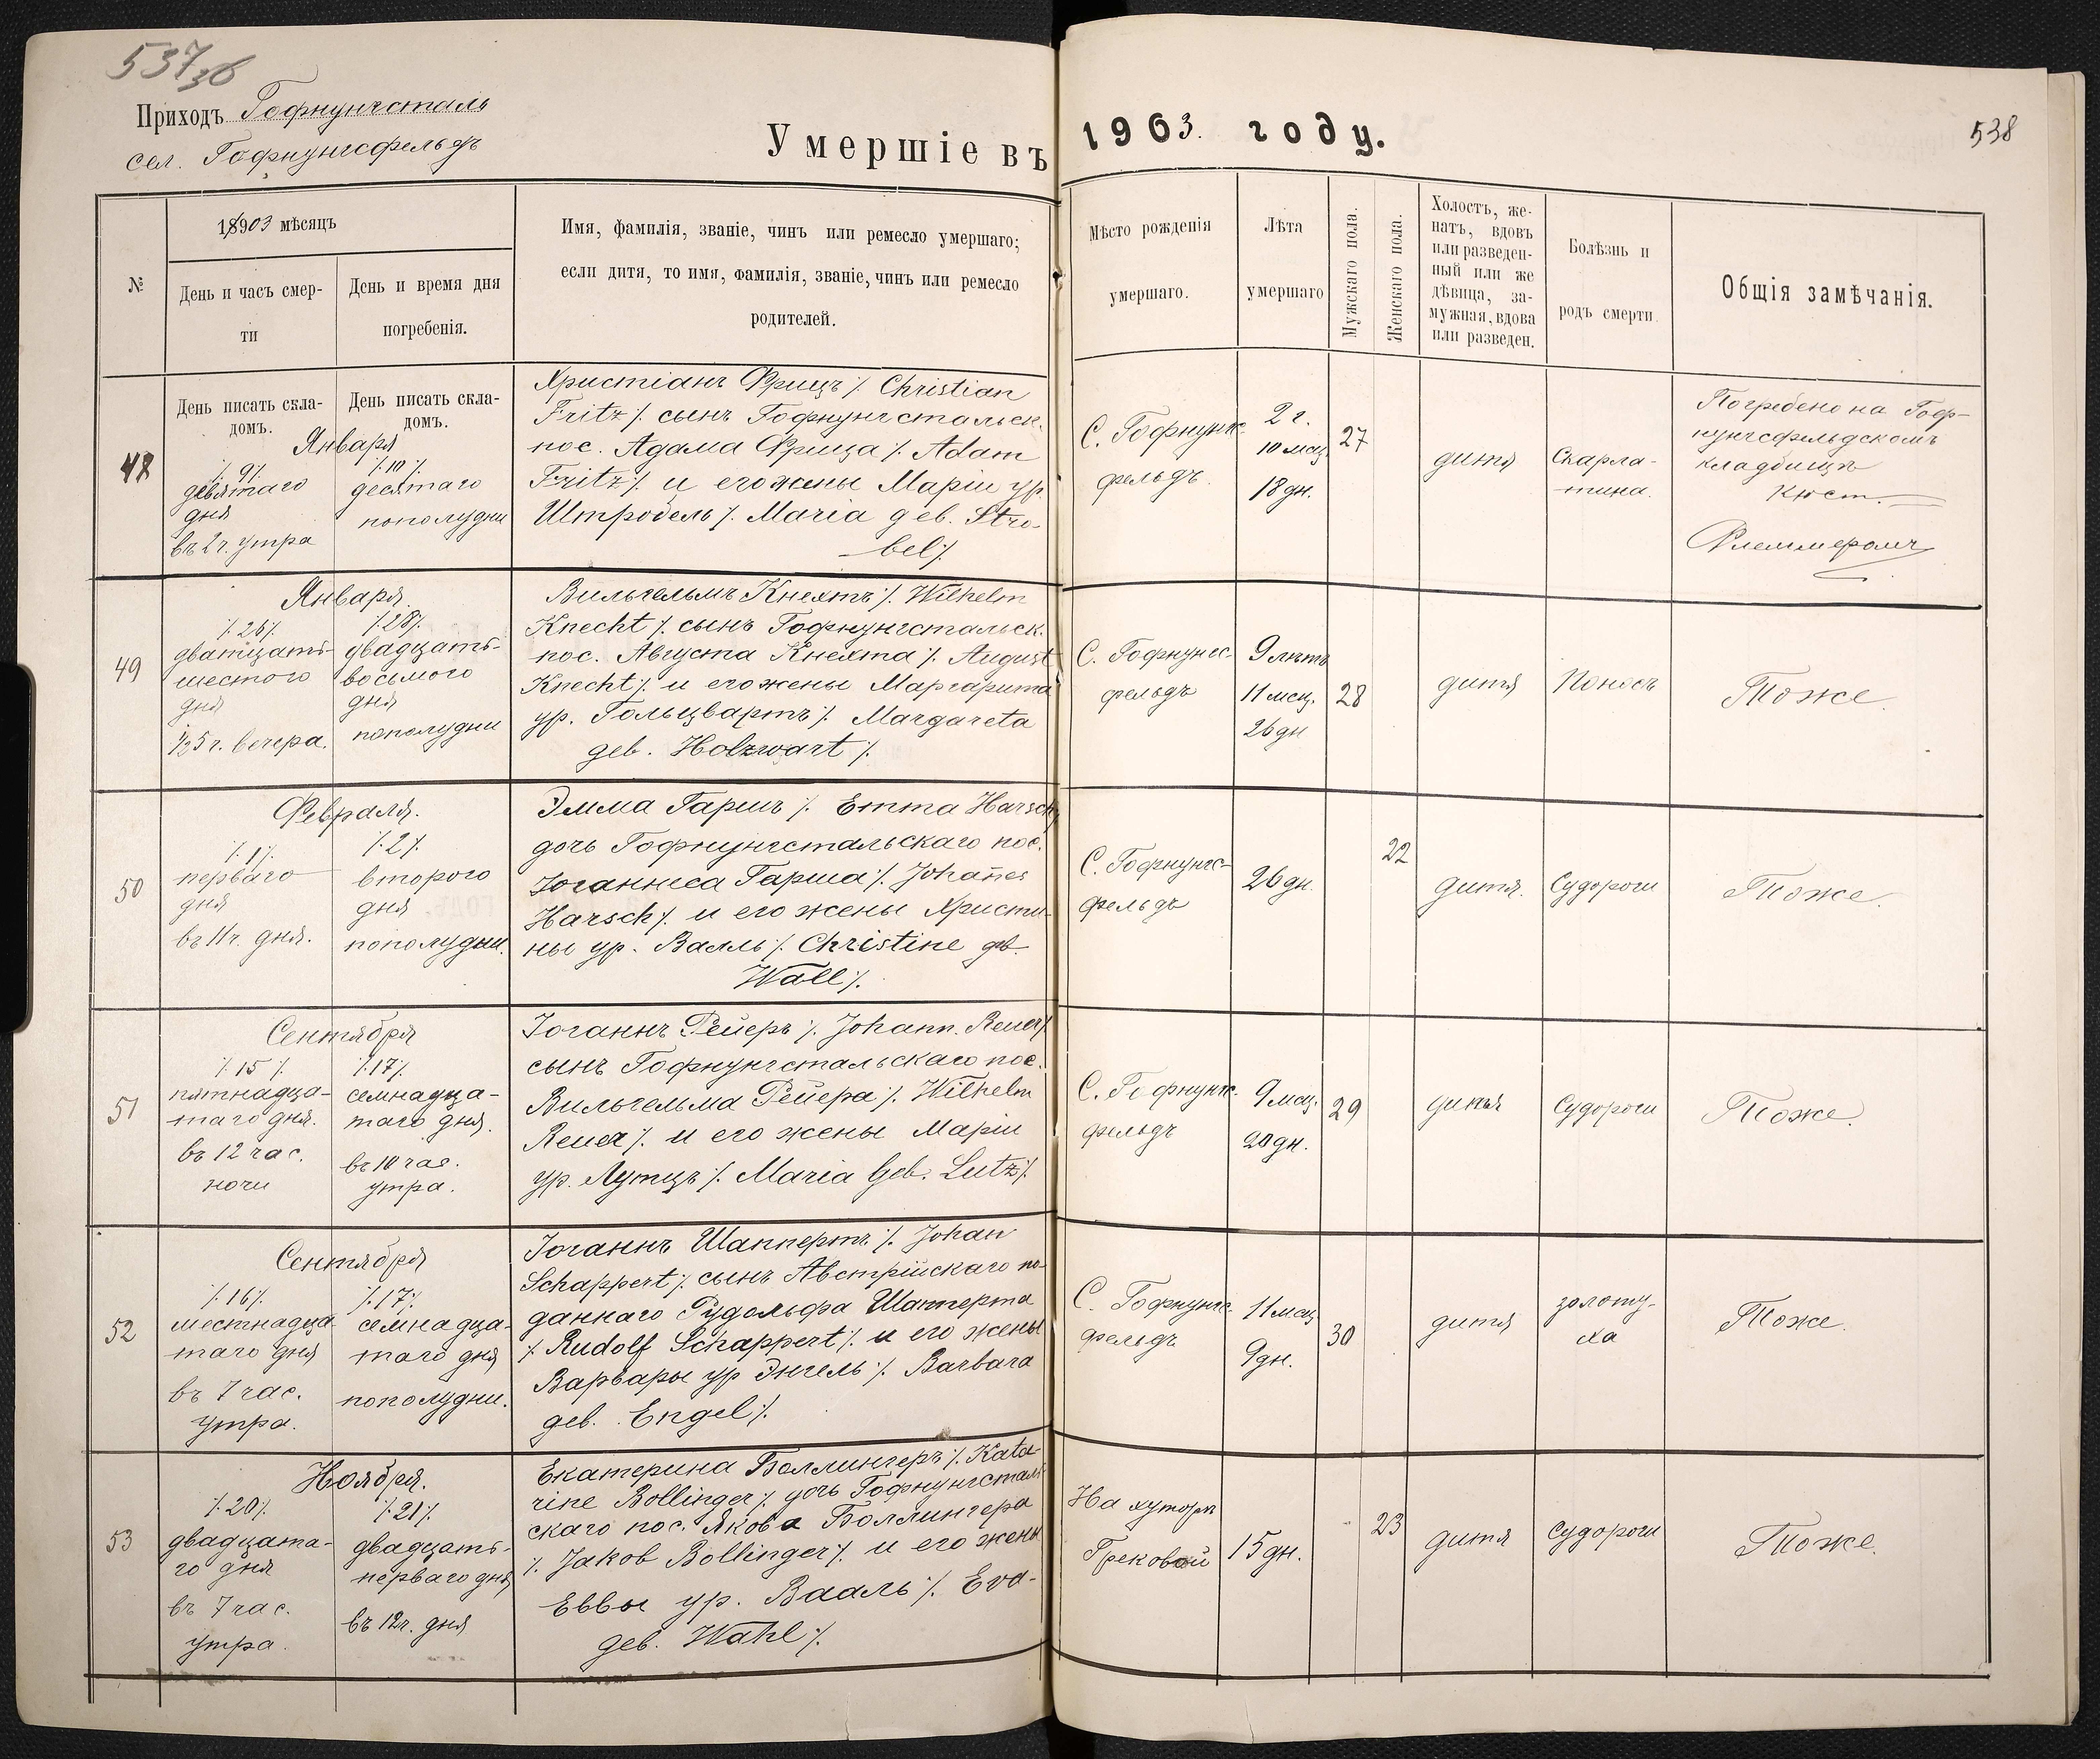 537 об
538
Приходъ Гофнунгсталь
сел. Гофнунгсфельдъ
Умершіе въ 1903 году.
№
18903 мѣсяцъ
День и часъ смер-
ти
День и время дня
погребенія.
Имя, фамилія, званіе, чинъ или ремесло умершаго;
если дитя, то имя, фамилія, званіе, чинъ или ремесло
родителей.
Мѣсто рожденія
умершаго.
Лѣта
умершаго
Мужскаго пола.
Женскаго пола.
Холостъ, же-
натъ, вдовъ
или разведен-
ный или же
дѣвица, за-
мужняя, вдова
или разведен.
Болѣзнь и
родъ смерти
Общія замѣчанія.
День писать скла-
домъ.
День писать скла-
домъ.
48
Января
/. 9 ./
девятаго
дня
въ 2 ч. утра
/. 10 ./
десятаго
пополудни
Христіанъ Фрицъ /. Christian
Fritz ./ сынъ Гофнунгстальск.
пос. Адама Фрица /. Adam
Fritz ./ и его жены Маріи ур.
Штробель /. Maria geb. Stro-
bel ./
С. Гофнунгс-
фельдъ.
2 г.
10 мсц.
18 дн.
27
дитя
Скарла-
тина.
Погребено на Гоф-
нунгсфельдскомъ
кладбищѣ
Кюст.
Флеммеромъ
49
Января.
/. 26 ./
дватцать-
шестого
дня
½5 ч. вечера.
/. 28 ./
двадцать-
восьмого
дня
пополудни
Вильгельмъ Кнехтъ /. Wilhelm
Knecht ./ сынъ Гофнунгстальск.
пос. Августа Кнехта /. August
Knecht ./ и его жены Маргарита
ур. Гольцвартъ /. Margareta
geb. Holzwart ./
С. Гофнунгс-
фельдъ
9 лѣтъ
11 мсц.
26 дн
28
дитя
Поносъ
Тоже.
50
Февраля.
/. 1 ./
перваго
дня
въ 11 ч. дня.
/. 2 ./
второго
дня
пополудни.
Эмма Гаршъ /. Emma Harsch ./
дочь Гофнунгстальскаго пос.
Іоганнеса Гарша /. Johañes
Harsch ./ и его жены Христи-
ны ур. Валль /. Christine geb.
Wall ./
С. Гофнунгс-
фельдъ
26 дн.
22
дитя.
Судороги
Тоже.
51
Сентября
/. 15 ./
пятнадца-
таго дня.
въ 12 час.
ночи
/. 17 ./
семнадца-
таго дня.
въ 10 час.
утра.
Іоганнъ Рейеръ /. Johann. Reuer ./
сынъ Гофнунгстальскаго пос.
Вильгельма Рейера /. Wilhelm
Reuer ./ и его жены Маріи
ур. Лутцъ /. Maria Geb. Lutz ./
С. Гофнунгс-
фельдъ
9 мсц.
20 дн.
29
дитя
Судороги
Тоже.
52
Сентября
/. 16 ./
шестнадца-
таго дня
въ 7 час.
утра.
/. 17 ./
семнадца-
таго дня
пополудни.
Іоганнъ Шаппертъ /. Johan
Schappert ./ сынъ Австрійскаго по-
даннаго Рудольфа Шапперта
/. Rudolf Schappert ./ и его жены
Варвары ур Энгель /. Barbara
geb. Engel ./
С. Гофнунгс-
фельдъ
11 мсц.
9 дн.
30
дитя
золоту-
ха
Тоже.
53
Ноября.
/. 20 ./
двадцата-
го дня
въ 7 час.
утра.
/. 21 ./
двадцать-
перваго дня
въ 12 ч. дня
Екатерина Боллингеръ /. Kata-
rine Bollinger ./ дочь Гофнунгсталь-
скаго пос. Якова Боллингера
/. Jakob Bollinger ./ и его жены
Еввы ур. Вааль /. Eva-
geb. Wahl ./
На хуторѣ
Грековой
15 дн.
23
дитя
Судороги
Тоже.